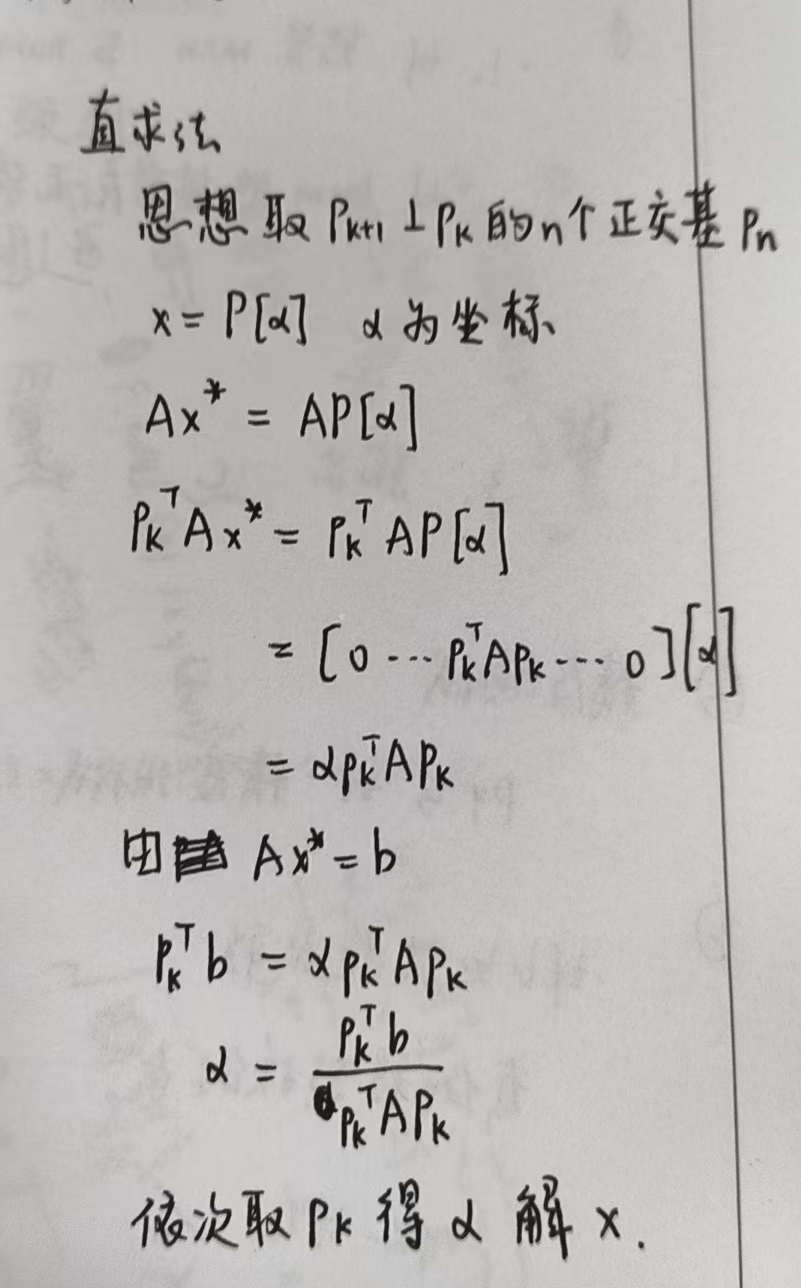 直求法
思想 取 P_{k+1} ⊥ P_k 的 n个 正交基 P_n
x = P[α] α 为坐标、
Ax^* = AP[α]
P_k^T A x^* = P_k^T AP[α]
= [0 ··· P_k^T A P_k ··· 0][α]
= α P_k^T A P_k
由 Ax^* = b
P_k^T b = α P_k^T A P_k
α = \frac{P_k^T b}{P_k^T A P_k}
依次取 P_k 得 α 解 x.